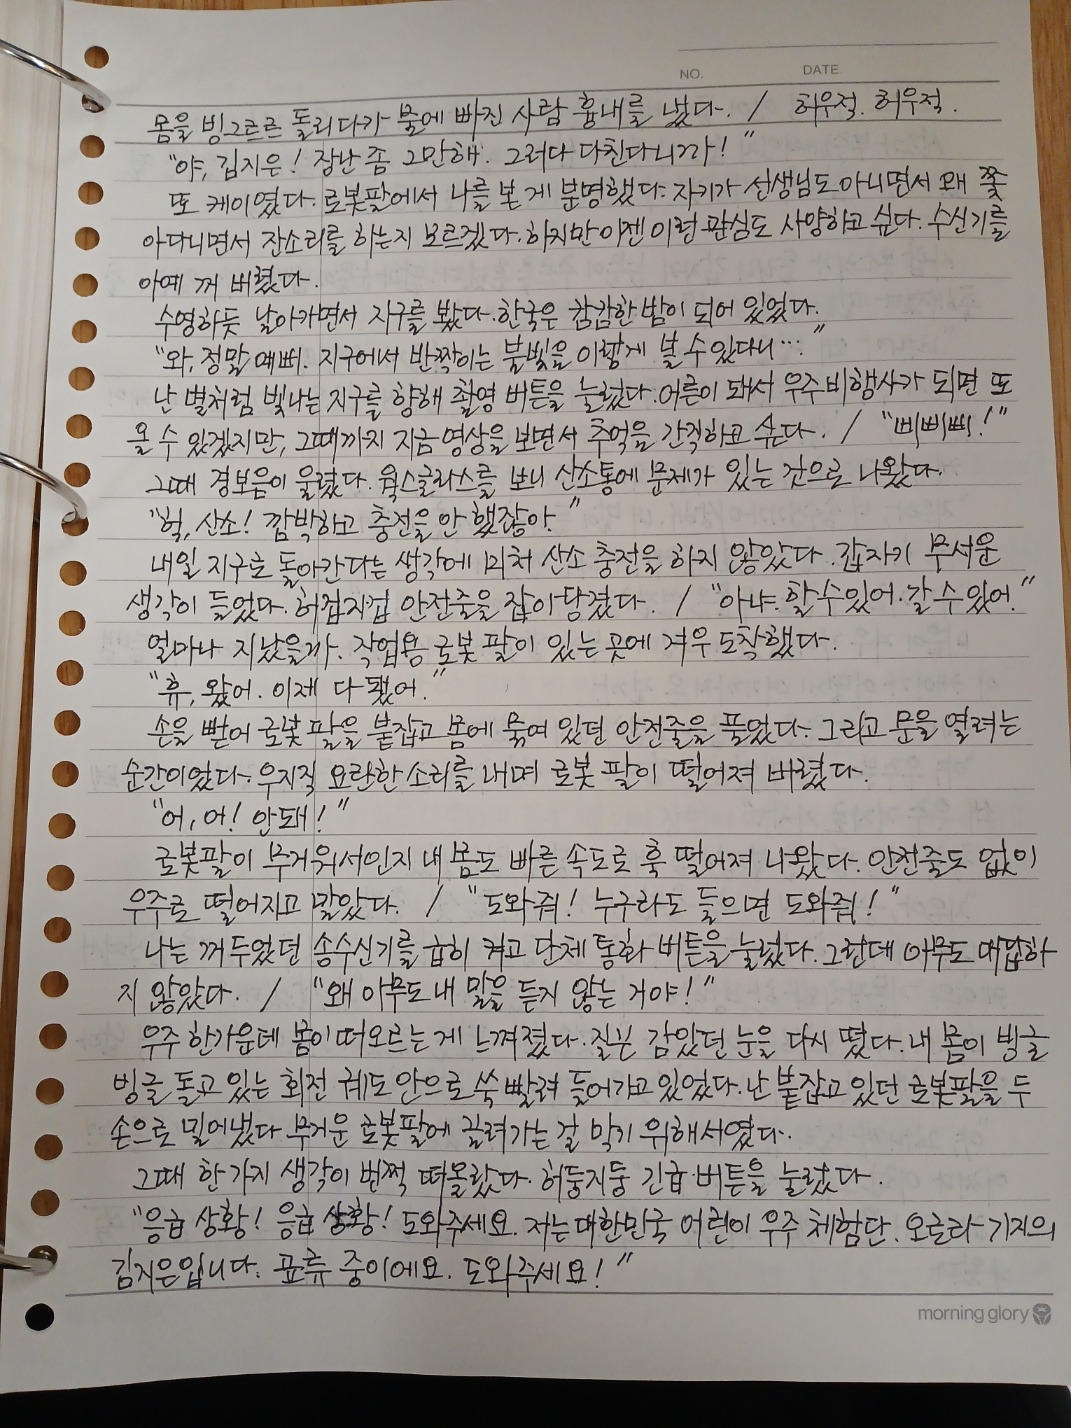 NO. DATE.
몸을 빙그르르 돌리다가 물에 빠진 사람 흉내를 냈다. / 허우적. 허우적.
"야, 김지은! 장난 좀 그만해. 그러다 다친다니까!"
또 케이였다. 로봇팔에서 나를 본 게 분명했다. 자기가 선생님도 아니면서 왜 쫓
아다니면서 잔소리를 하는지 모르겠다. 하지만 이젠 이런 관심도 사양하고 싶다. 수신기를
아예 꺼 버렸다.
수영하듯 날아가면서 지구를 봤다. 한국은 캄캄한 밤이 되어 있었다.
"와, 정말 예뻐. 지구에서 반짝이는 불빛을 이렇게 볼 수 있다니…."
난 별처럼 빛나는 지구를 향해 촬영 버튼을 눌렀다. 어른이 돼서 우주 비행사가 되면 또
올 수 있겠지만, 그때까지 지금 영상을 보면서 추억을 간직하고 싶다. / "삐삐삐!"
그때 경보음이 울렸다. 웍스글라스를 보니 산소통에 문제가 있는 것으로 나왔다.
"헉, 산소! 깜박하고 충전을 안 했잖아."
내일 지구로 돌아간다는 생각에 미처 산소 충전을 하지 않았다. 갑자기 무서운
생각이 들었다. 허겁지겁 안전줄을 잡아당겼다. / "아냐. 할 수 있어. 갈 수 있어."
얼마나 지났을까. 작업용 로봇 팔이 있는 곳에 겨우 도착했다.
"휴, 왔어. 이제 다 됐어."
손을 뻗어 로봇 팔을 붙잡고 몸에 묶여 있던 안전줄을 풀었다. 그리고 문을 열려는
순간이었다. 우지직 요란한 소리를 내며 로봇 팔이 떨어져 버렸다.
"어, 어! 안돼!"
로봇팔이 무거워서인지 내 몸도 빠른 속도로 훅 떨어져 나왔다. 안전줄도 없이
우주로 떨어지고 말았다. / "도와줘! 누구라도 들으면 도와줘!"
나는 꺼 두었던 송수신기를 급히 켜고 단체 통화 버튼을 눌렀다. 그런데 아무도 대답하
지 않았다. / "왜 아무도 내 말을 듣지 않는 거야!"
우주 한가운데 몸이 떠오르는 게 느껴졌다. 질끈 감았던 눈을 다시 떴다. 내 몸이 빙글
빙글 돌고 있는 회전 궤도 안으로 쑥 빨려 들어가고 있었다. 난 붙잡고 있던 로봇팔을 두
손으로 밀어냈다. 무거운 로봇팔에 끌려가는 걸 막기 위해서였다.
그때 한 가지 생각이 번쩍 떠올랐다. 허둥지둥 긴급 버튼을 눌렀다.
"응급 상황! 응급 상황! 도와주세요. 저는 대한민국 어린이 우주 체험단. 오로라 기지의
김지은입니다. 표류 중이에요. 도와주세요!"
morning glory